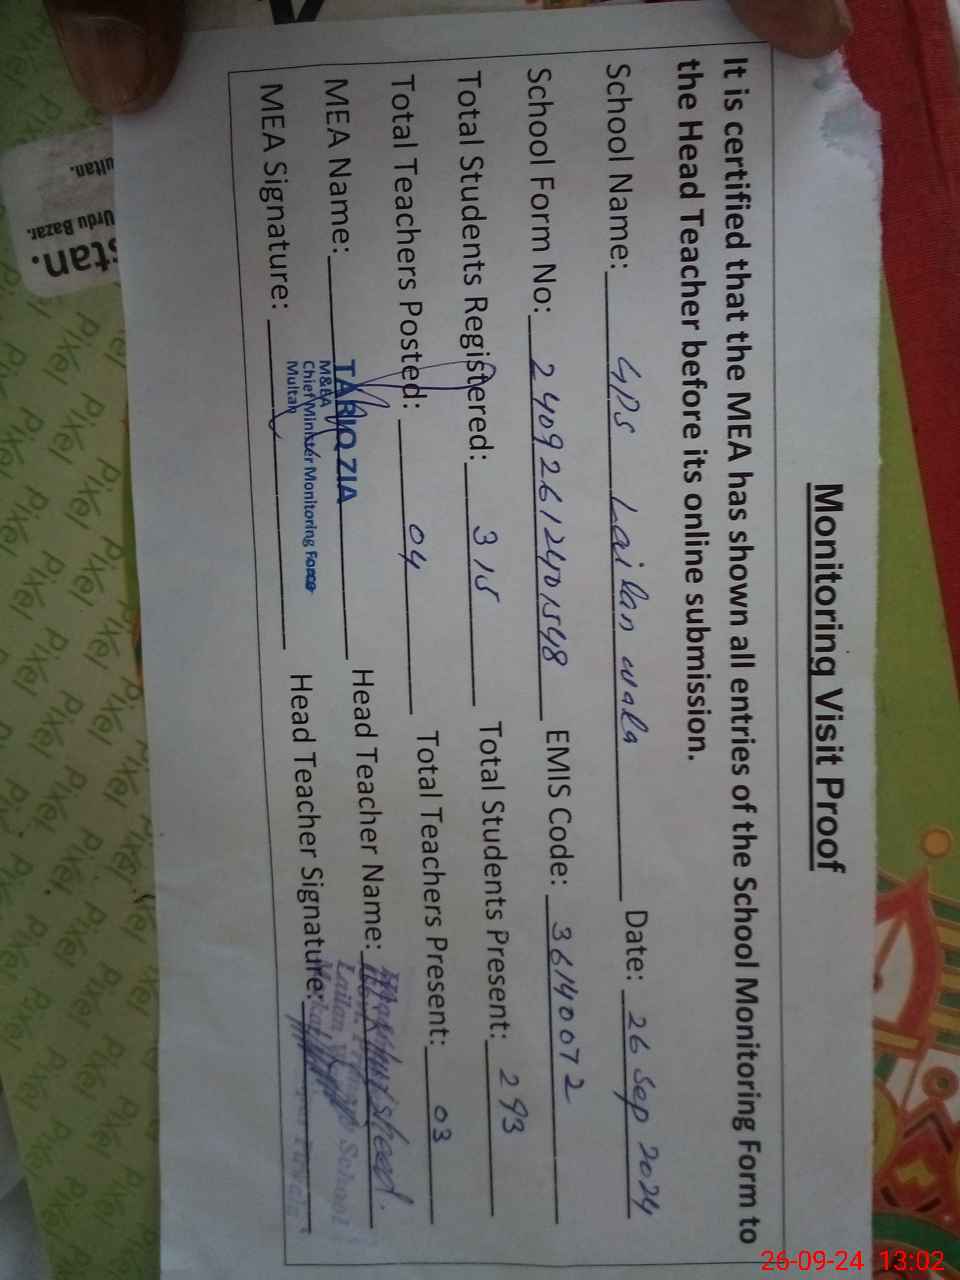 Monitoring Visit Proof
It is certified that the MEA has shown all entries of the School Monitoring Form to
the Head Teacher before its online submission.
School Name: GPS Lailan wala Date: 26 Sep 2024
School Form No: 24092612401548 EMIS Code: 36140072
Total Students Registered: 315 Total Students Present: 293
Total Teachers Posted: 04 Total Teachers Present: 03
MEA Name: TARIQ ZIA Head Teacher Name:
M&EA
Chief Minister Monitoring Force
Multan
MEA Signature: Head Teacher Signature:
School
ultan.
Urdu Bazar.
stan.
Pixel Pixel Pixel Pixel
26-09-24 13:02